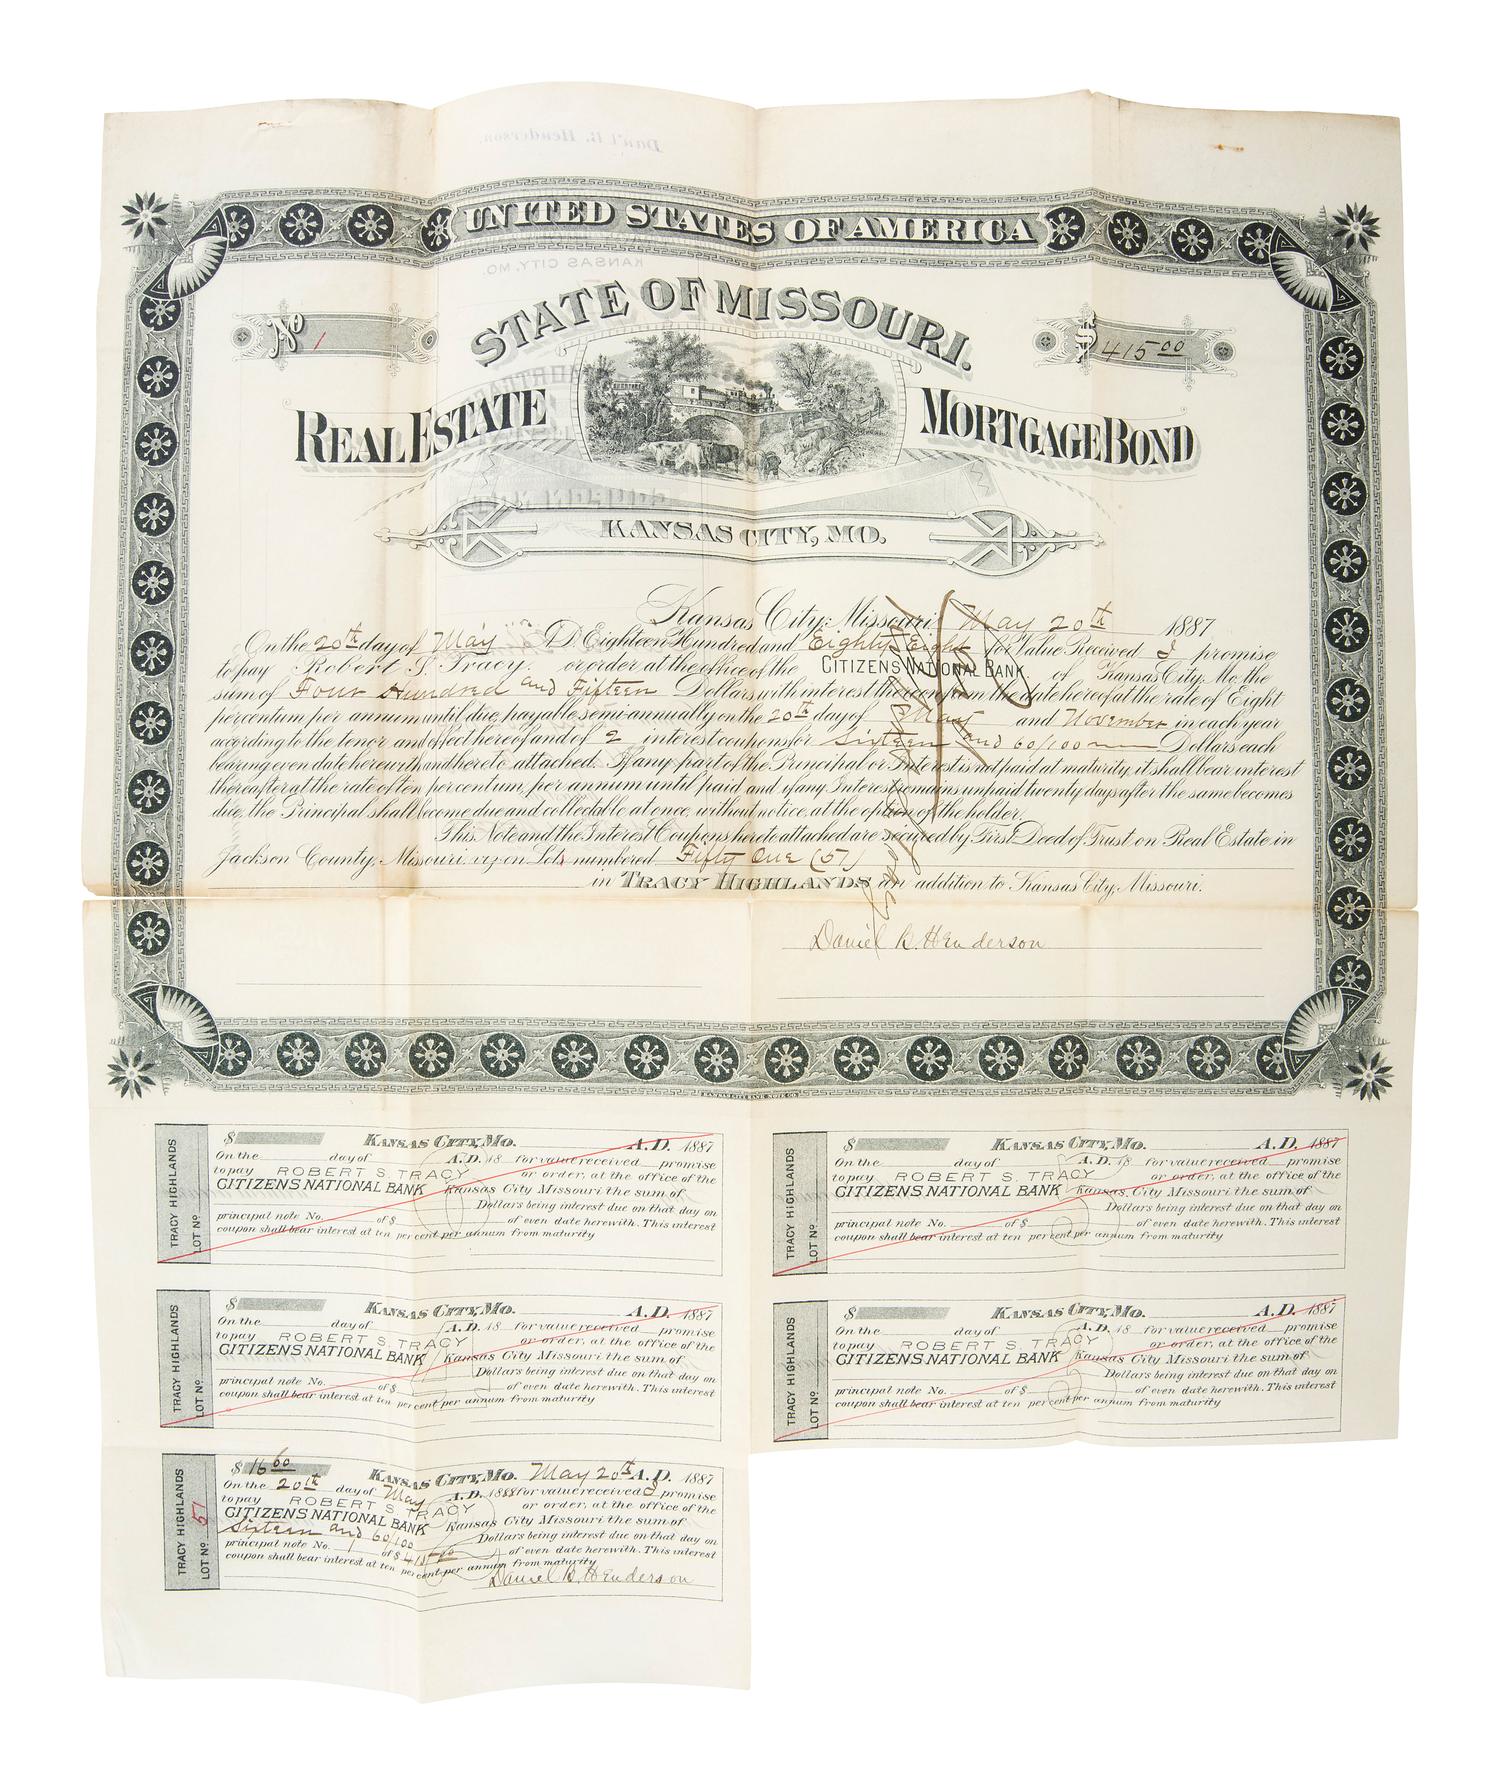 Dan'l B. Henderson.
UNITED STATES OF AMERICA
KANSAS CITY, MO.
STATE OF MISSOURI.
No 1
$ 415 00
REAL ESTATE MORTGAGE BOND
COUPON NOTE
KANSAS CITY, MO.
Kansas City, Missouri, May 20th 1887
On the 20th day of May A.D. Eighteen Hundred and Eighty Eight for Value Received I promise
to pay Robert S. Tracy. or order at the office of the CITIZENS NATIONAL BANK. of Kansas City, Mo. the
sum of Four Hundred and Fifteen Dollars with interest thereon from the date hereof at the rate of Eight
per centum per annum until due, payable semi-annually on the 20th day of May and November in each year
according to the tenor and effect hereof and of 2 interest coupons for Sixteen and 60/100 Dollars each
bearing even date herewith and hereto attached. If any part of the Principal or Interest is not paid at maturity, it shall bear interest
thereafter at the rate of ten per centum, per annum until paid and if any Interest remains unpaid twenty days after the same becomes
due, the Principal shall become due and collectable at once, without notice, at the option of the holder.
This Note and the Interest Coupons hereto attached are secured by First Deed of Trust on Real Estate in
Jackson County, Missouri, viz: on Lots numbered Fifty One (51)
in TRACY HIGHLANDS an addition to Kansas City, Missouri.
Daniel B. Henderson
KANSAS CITY BANK NOTE CO.
TRACY HIGHLANDS
LOT No
$ KANSAS CITY, MO. A.D. 1887
On the day of A.D. 18 for value received promise
to pay ROBERT S. TRACY or order, at the office of the
CITIZENS NATIONAL BANK Kansas City Missouri the sum of
Dollars being interest due on that day on
principal note No. of $ of even date herewith. This interest
coupon shall bear interest at ten per cent per annum from maturity
TRACY HIGHLANDS
LOT No
$ KANSAS CITY, MO. A.D. 1887
On the day of A.D. 18 for value received promise
to pay ROBERT S. TRACY or order, at the office of the
CITIZENS NATIONAL BANK Kansas City Missouri the sum of
Dollars being interest due on that day on
principal note No. of $ of even date herewith. This interest
coupon shall bear interest at ten per cent per annum from maturity
TRACY HIGHLANDS
LOT No
$ KANSAS CITY, MO. A.D. 1887
On the day of A.D. 18 for value received promise
to pay ROBERT S. TRACY or order, at the office of the
CITIZENS NATIONAL BANK Kansas City Missouri the sum of
Dollars being interest due on that day on
principal note No. of $ of even date herewith. This interest
coupon shall bear interest at ten per cent per annum from maturity
TRACY HIGHLANDS
LOT No
$ KANSAS CITY, MO. A.D. 1887
On the day of A.D. 18 for value received promise
to pay ROBERT S. TRACY or order, at the office of the
CITIZENS NATIONAL BANK Kansas City Missouri the sum of
Dollars being interest due on that day on
principal note No. of $ of even date herewith. This interest
coupon shall bear interest at ten per cent per annum from maturity
TRACY HIGHLANDS
LOT No 51
$ 16 60 KANSAS CITY, MO. May 20th A.D. 1887
On the 20th day of May A.D. 1888 for value received I promise
to pay ROBERT S TRACY or order, at the office of the
CITIZENS NATIONAL BANK Kansas City Missouri the sum of
Sixteen and 60/100 Dollars being interest due on that day on
principal note No. 1 of $ 415.00 of even date herewith. This interest
coupon shall bear interest at ten per cent per annum from maturity
Daniel B. Henderson